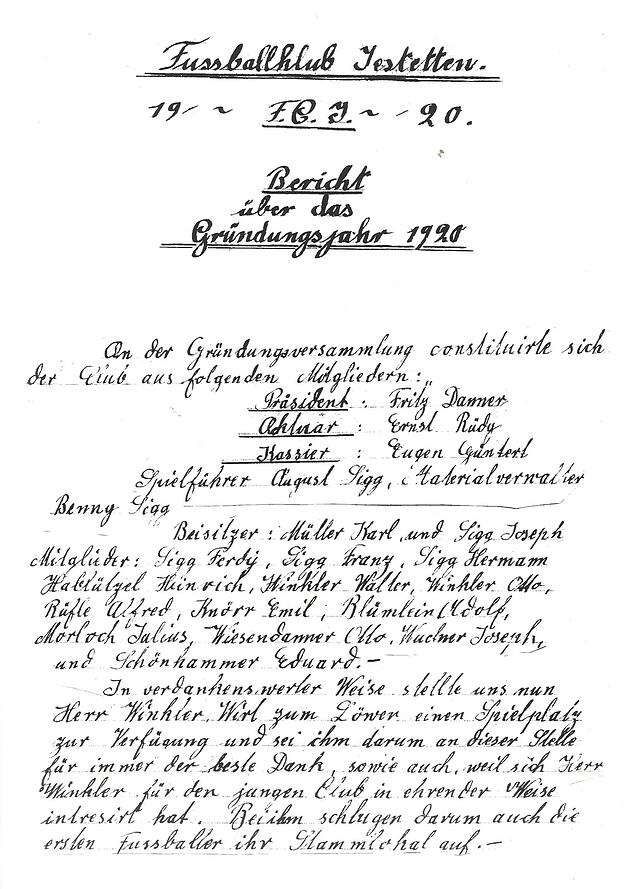 Fussballklub Jestetten.
19 - ~ F.C.J. ~ - 20.
Bericht
über das
Gründungsjahr 1920
An der Gründungsversammlung constituirte sich
der Club aus folgenden Mitgliedern:
Präsident : Fritz Danner
Aktuar : Ernst Rüdy
Kassier : Eugen Güntert
Spielführer August Sigg, Materialverwalter
Benny Sigg
Beisitzer : Müller Karl, und Sigg Joseph
Mitglieder: Sigg Ferdy, Sigg Franz, Sigg Hermann
Habtützel Heinrich, Winkler Walter, Winkler Otto,
Rüfle Alfred, Knörr Emil, Blümlein Adolf,
Morloch Julius, Wiesendanner Otto, Wachner Joseph,
und Schönhammer Eduard.-
In verdankenswerter Weise stellte uns nun
Herr Winkler, Wirt zum Löwen einen Spielplatz
zur Verfügung und sei ihm darum an dieser Stelle
für immer der beste Dank, sowie auch, weil sich Herr
Winkler für den jungen Club in ehrender Weise
intresirt hat. Bei ihm schlugen darum auch die
ersten Fussballer ihr Stammlokal auf.-